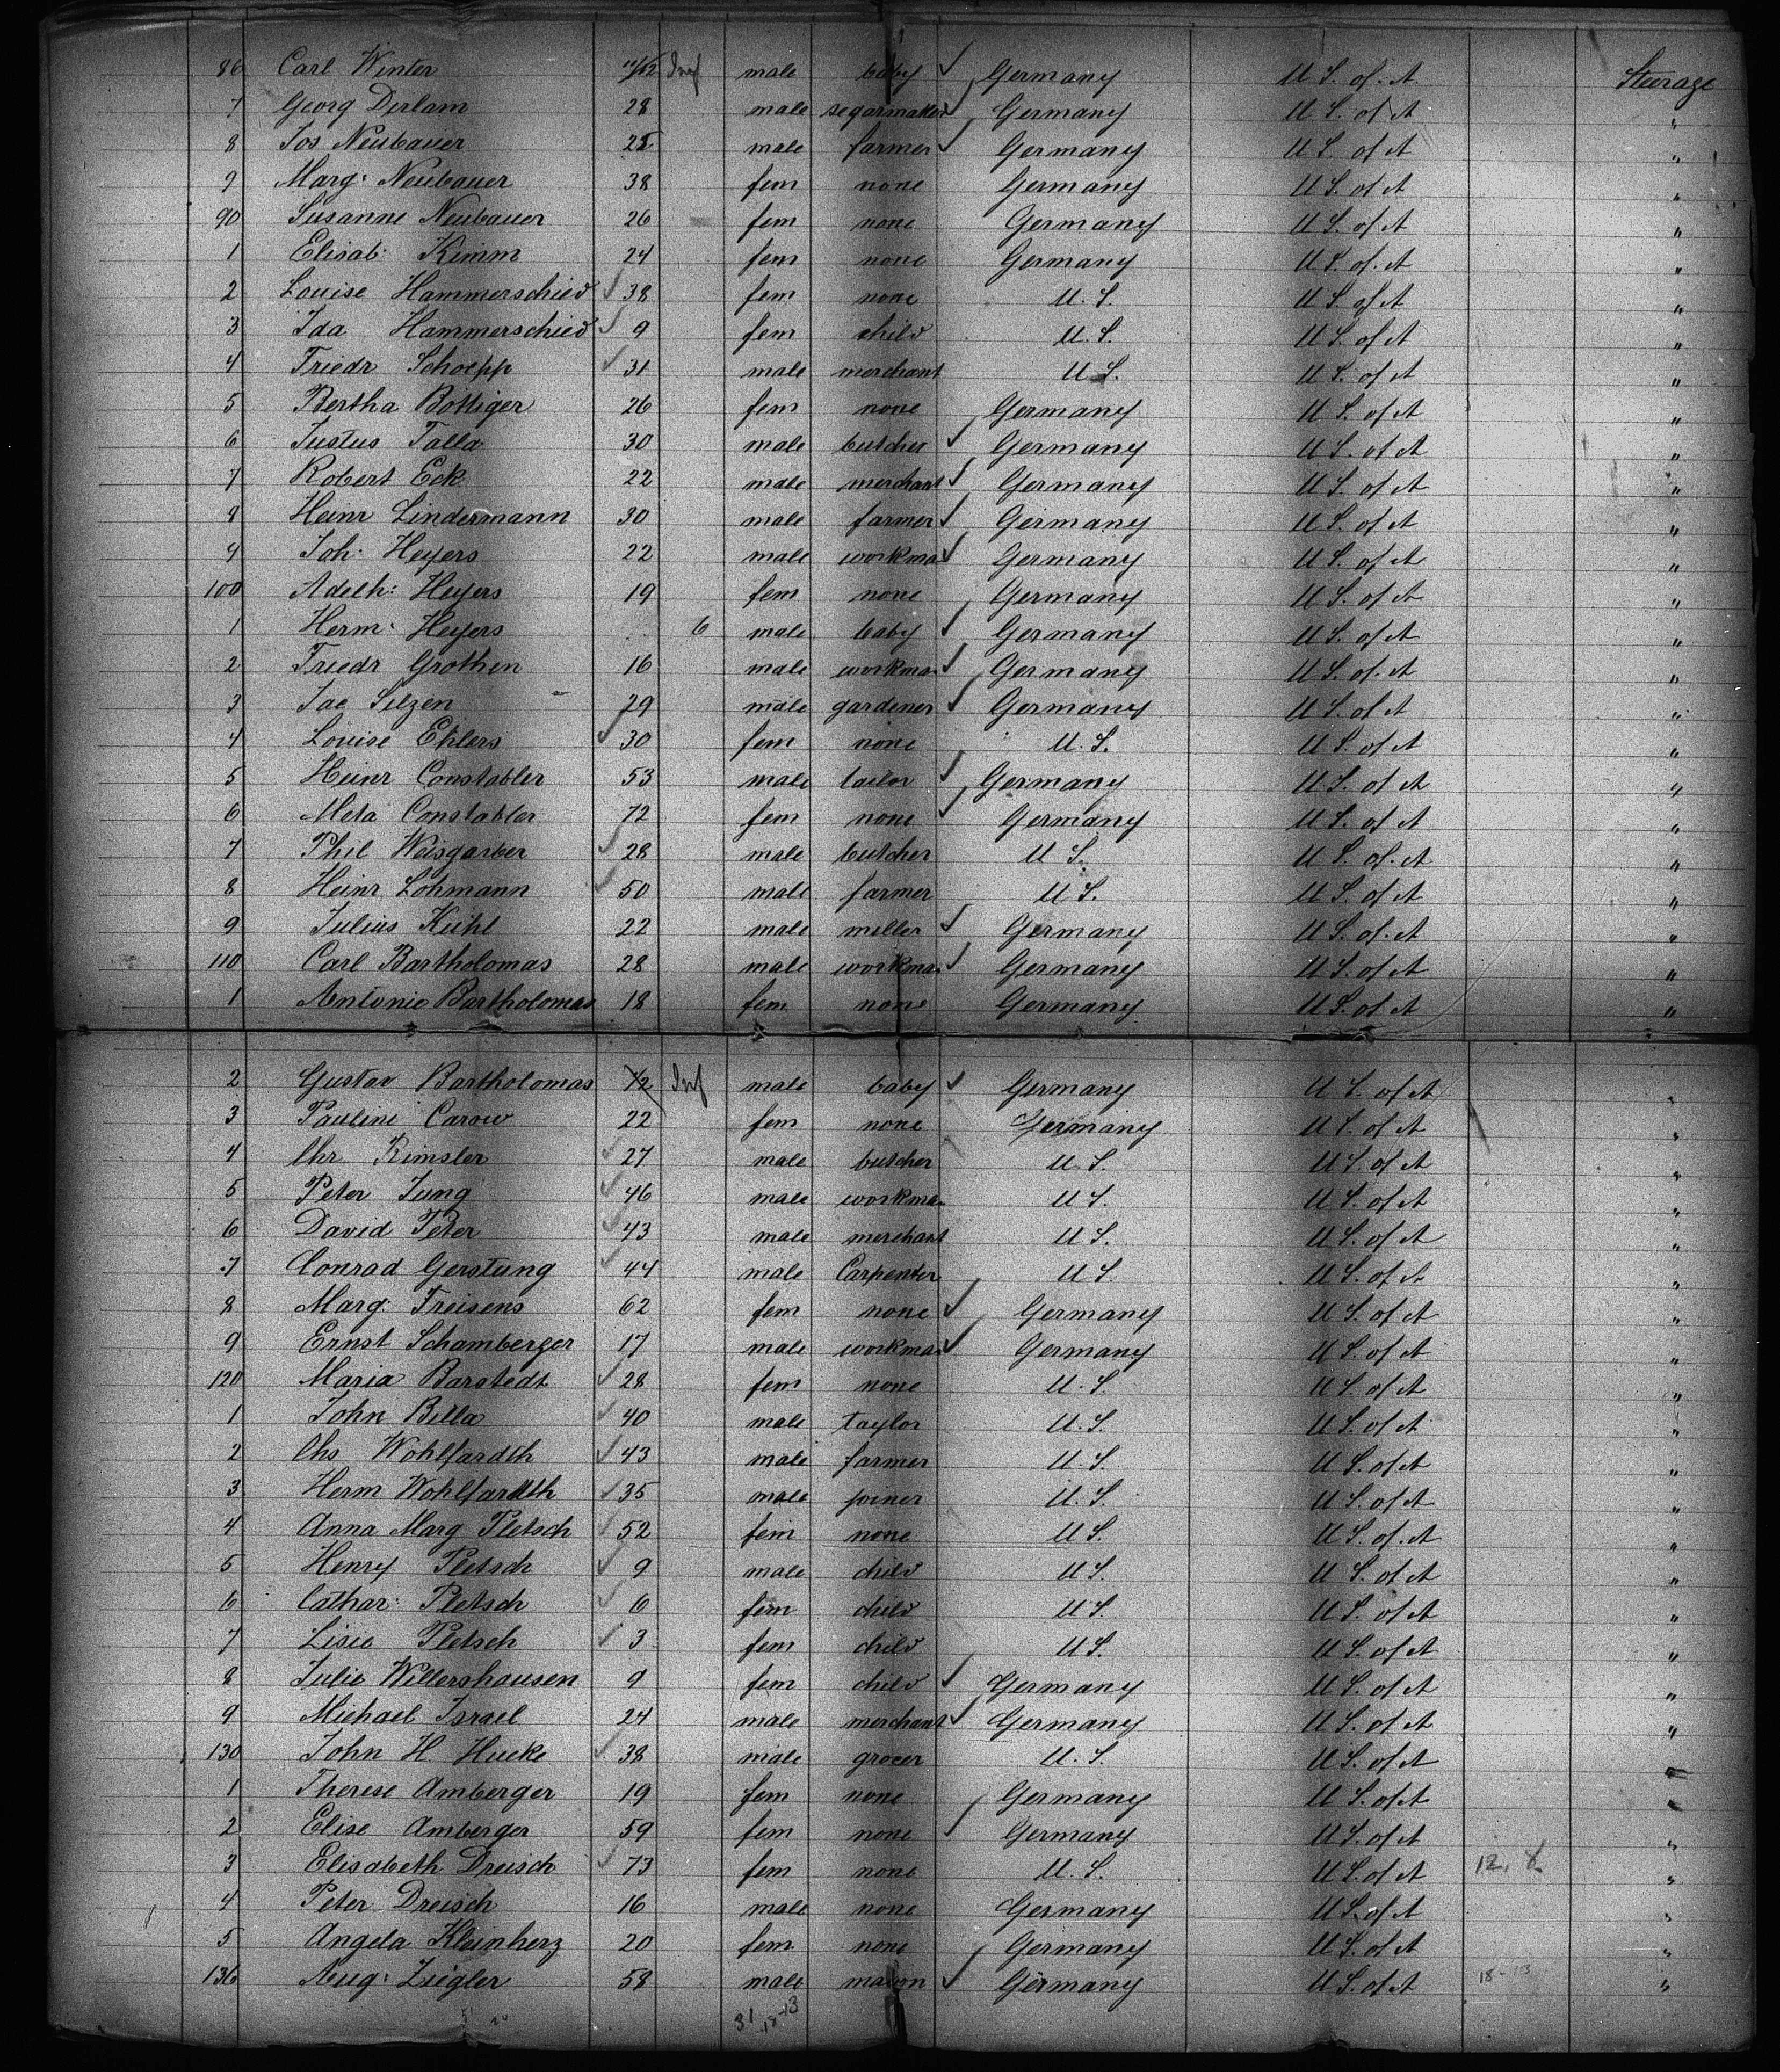 86 Carl Winter 11/12 Inf male baby ✓ Germany U S. of. A Steerage
7 Georg Derlam 28 male segarmaker ✓ Germany U S. of A "
8 Jos Neubauer 25 male farmer ✓ Germany U S. of A "
9 Marg: Neubauer 38 fem none Germany U S. of A "
90 Susanne Neubauer 26 fem none Germany U S. of A "
1 Elisab: Kimm 24 fem none Germany U S. of. A "
2 Louise Hammerschied ✓ 38 fem none U. S. U S. of A "
3 Ida Hammerschied ✓ 9 fem child U. S. U S. of A "
4 Friedr Schoepp ✓ 31 male merchant U S. U S. of A "
5 Bertha Bottiger 26 fem none Germany U S. of A "
6 Justus Talla 30 male butcher ✓ Germany U S. of A "
7 Robert Eck 22 male merchant ✓ Germany U S. of A "
8 Heinr Lindermann 30 male farmer ✓ Germany U S. of A "
9 Joh: Heyers 22 male workman ✓ Germany U S. of A "
100 Adelh: Heyers 19 fem none Germany U S. of A "
1 Herm: Heyers 6 male baby ✓ Germany U S. of A "
2 Friedr Grothen 16 male workman ✓ Germany U S. of. A "
3 Jac Silzen 29 male gardener ✓ Germany U S. of A "
4 Louise Ehlers ✓ 30 fem none U. S. U S. of A "
5 Heinr Constabler 53 male tailor ✓ Germany U S. of A "
6 Meta Constabler 72 fem none ✓ Germany U S. of A "
7 Phil Weisgarber ✓ 28 male butcher U S. U S. of. A "
8 Heinr Lohmann ✓ 50 male farmer U S. U S. of A "
9 Julius Kühl 22 male miller ✓ Germany U S. of. A "
110 Carl Bartholomas 28 male workman ✓ Germany U S. of A "
1 Antonie Bartholomas 18 fem none Germany U S. of A "
2 Gustav Bartholomas Inf male baby ✓ Germany U S. of A "
3 Pauline Carow 22 fem none Germany U S. of A "
4 Chr Rimsler ✓ 27 male butcher U. S. U S. of A "
5 Peter Jung ✓ 46 male workman U S. U S. of A "
6 David Peter ✓ 43 male merchant U S. U S. of A "
7 Conrad Gerstung ✓ 44 male Carpenter U S. U S. of A "
8 Marg: Freisens 62 fem none ✓ Germany U S. of A "
9 Ernst Schamberger 17 male workman ✓ Germany U S. of A "
120 Maria Barstedt ✓ 28 fem none U. S. U S. of A "
1 John Billa ✓ 40 male taylor U. S. U S. of A "
2 Chs Wohlfardth ✓ 43 male farmer U S. U S. of A "
3 Herm Wohlfardth ✓ 35 male joiner U. S. U S. of A "
4 Anna Marg Pletsch ✓ 52 fem none U S. U S. of. A "
5 Henry Pletsch ✓ 9 male child U S. U S. of A "
6 Cathar: Pletsch ✓ 6 fem child U S. U S. of A "
7 Lisie Pletsch ✓ 3 fem child U S. U S. of A "
8 Julie Willershausen 9 fem child ✓ Germany U S. of A "
9 Michael Israel 24 male merchant ✓ Germany U S. of A "
130 John H Hucke ✓ 38 male grocer U. S. U S. of A "
1 Therese Amberger 19 fem none Germany U S. of A "
2 Elise Amberger 59 fem none ✓ Germany U S. of A "
3 Elisabeth Dreisch ✓ 73 fem none U. S. U S. of A 12. 8 "
4 Peter Dreisch 16 male none Germany U S. of A "
5 Angela Kleinherz 20 fem none Germany U S. of A "
136 Aug: Ziegler 58 male mason ✓ Germany U S. of A 18-13 "
31 18-13